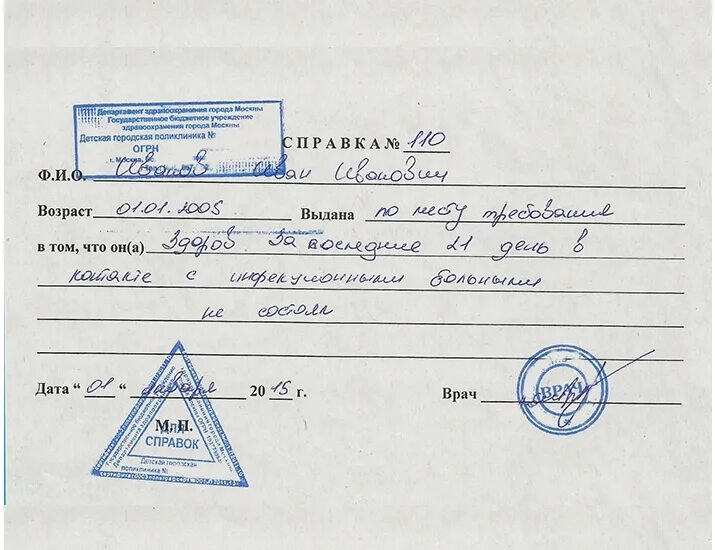 Департамент здравоохранения города Москвы
Государственное бюджетное учреждение
здравоохранения города Москвы
Детская городская поликлиника №
ОГРН
г. Москва,
СПРАВКА № 110
Ф.И.О. Иванов Иван Иванович
Возраст 01.01.2005 Выдана по месту требования
в том, что он(а) Здоров. За последние 21 день в
контакте с инфекционными больными
не состоял
Дата “ 01 ” января 2015 г. Врач
М.П.
ДЛЯ
СПРАВОК
Детская городская
поликлиника №
ВРАЧ